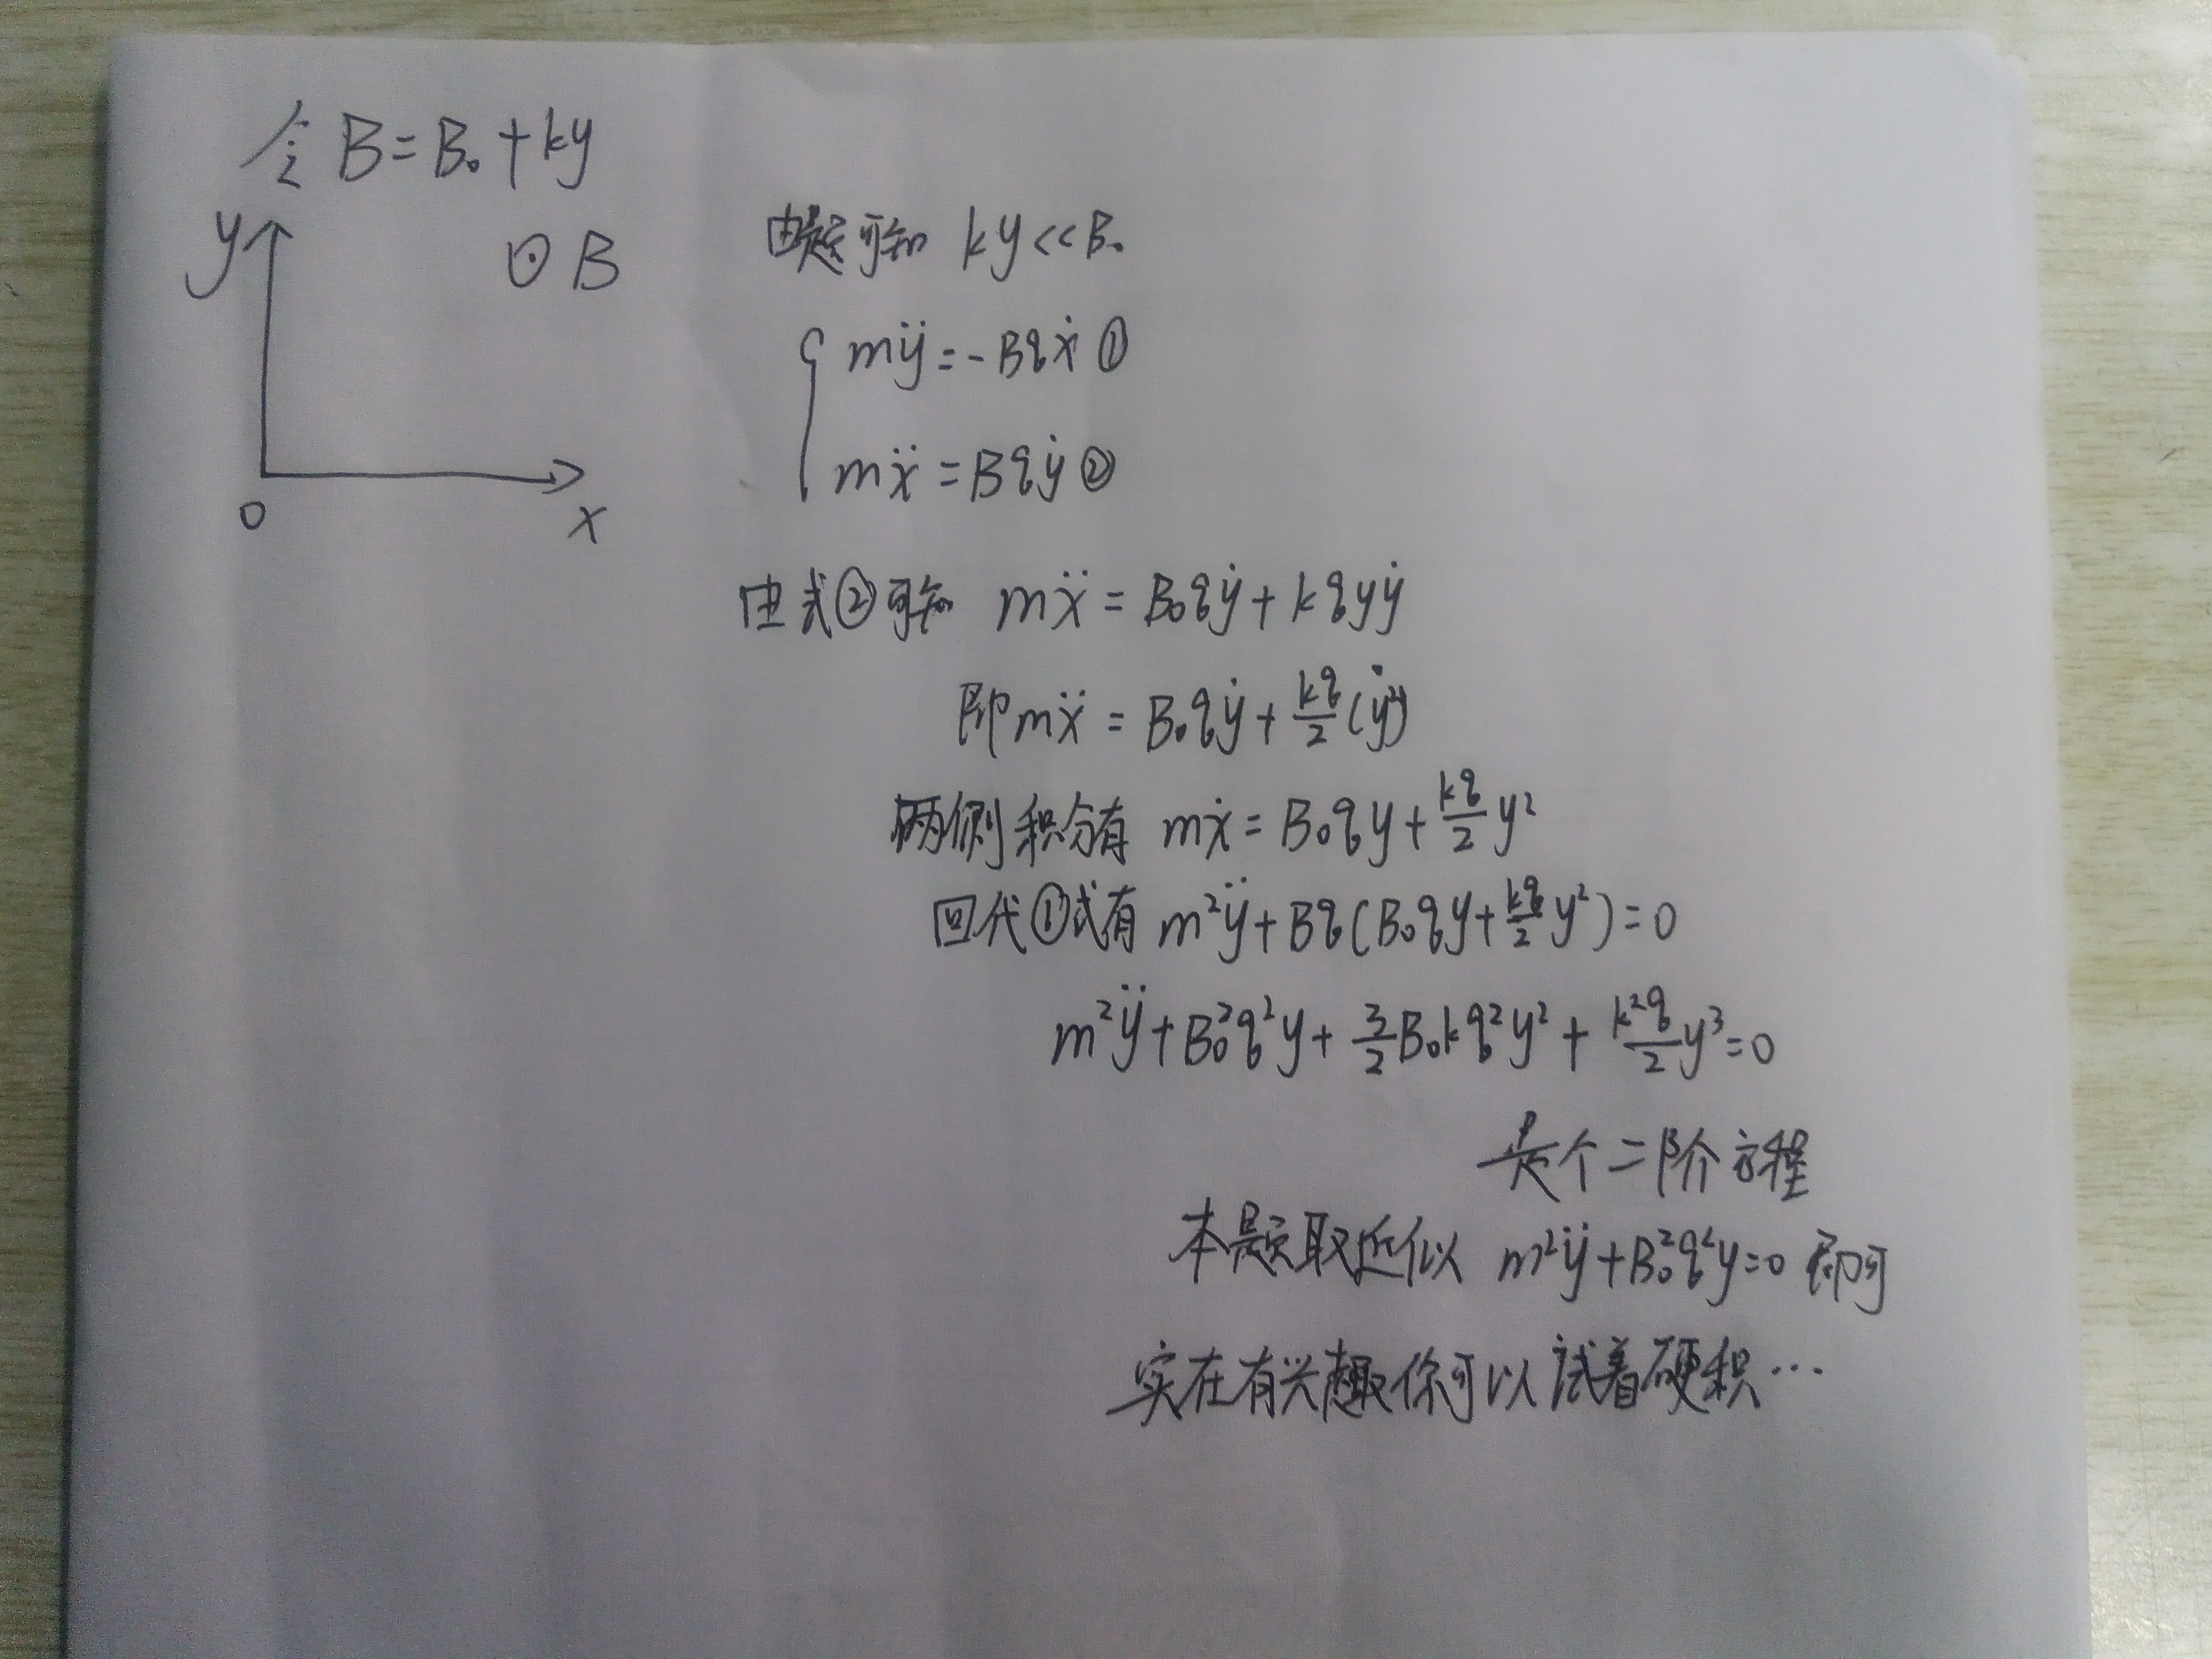 令 B=B₀+ky
y
⊙B
0
x
由题可知 ky<<B₀
mÿ=-Bqẋ ①
mẍ=Bqẏ ②
由式②可知 mẍ=B₀qẏ+kqyẏ
即mẍ=B₀qẏ+\frac{kq}{2}(y²)˙
两侧积分有 mẋ=B₀qy+\frac{kq}{2}y²
回代①式有 m²ÿ+Bq(B₀qy+\frac{kq}{2}y²)=0
m²ÿ+B₀²q²y+\frac{3}{2}B₀kq²y²+\frac{k²q}{2}y³=0
是个二阶方程
本题取近似 m²ÿ+B₀²q²y=0 即可
实在有兴趣你可以试着硬积…